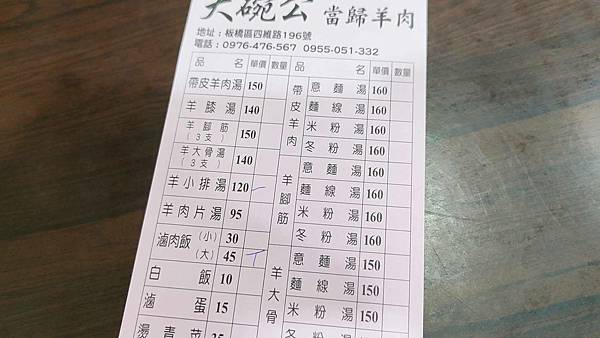 大碗公 當歸羊肉
地址：板橋區四維路196號
電話：0976-476-567 0955-051-332
品 名 單價 數量 品 名 單價 數量
帶皮羊肉湯 150
羊膝湯 140
羊腳筋（3支） 150
羊大骨湯（3支） 140
羊小排湯 120
羊肉片湯 95
滷肉飯（小） 30
（大） 45
白飯 10
滷蛋 15
燙青菜
帶皮羊肉
意麵湯 160
麵線湯 160
米粉湯 160
冬粉湯 160
羊腳筋
意麵湯 160
麵線湯 160
米粉湯 160
冬粉湯 160
羊大骨
意麵湯 150
麵線湯 150
米粉湯 150
冬粉湯